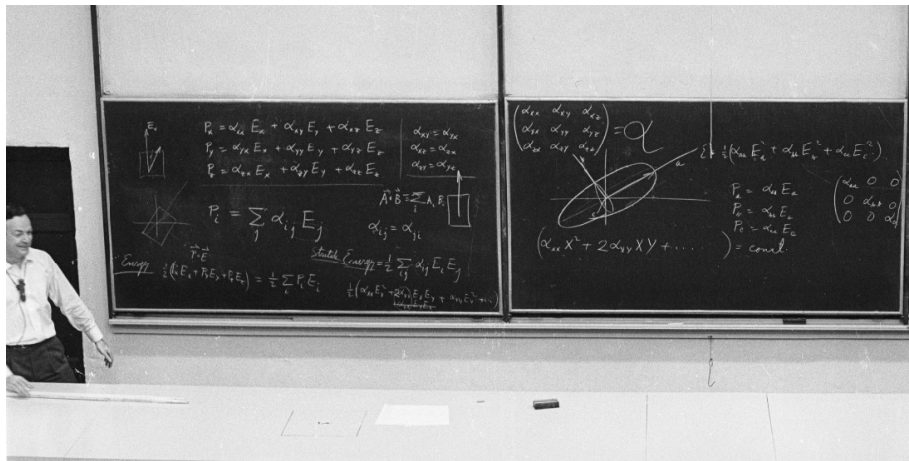 E
Pₓ = αₓₓ Eₓ + αₓᵧ Eᵧ + α_xz E_z
Pᵧ = αᵧₓ Eₓ + αᵧᵧ Eᵧ + α_yz E_z
P_z = α_zx Eₓ + α_zy Eᵧ + α_zz E_z
αₓᵧ = αᵧₓ
α_xz = α_zx
α_zy = α_yz
P_i = ∑_j α_ij E_j
A⃗·B⃗ = ∑_i A_i B_i
α_ij = α_ji
P⃗·E⃗
Energy ½(PₓEₓ + PᵧEᵧ + P_zE_z) = ½ ∑_i P_i E_i
Energy = ½ ∑_ij α_ij E_i E_j
½(αₓₓEₓ² + 2αₓᵧ EₓEᵧ + αᵧᵧEᵧ² +
(αₓₓ αₓᵧ α_xz
αᵧₓ αᵧᵧ α_yz
α_zx α_zy α_zz) = α
a
½(α_aa E_a² + α_bb E_b² + α_cc E_c²)
P_a = α_aa E_a
P_b = α_bb E_b
P_c = α_cc E_c
(α_aa 0 0
0 α_bb 0
0 0 α_cc)
(αₓₓ X² + 2αₓᵧ XY + .....) = const